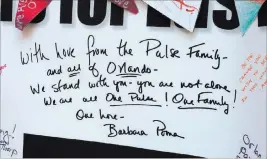 With love from the Pulse Family-
and all of Orlando-
We stand with you- you are not alone,
We are are One Pulse! One Family!
One love-
Barbara Poma